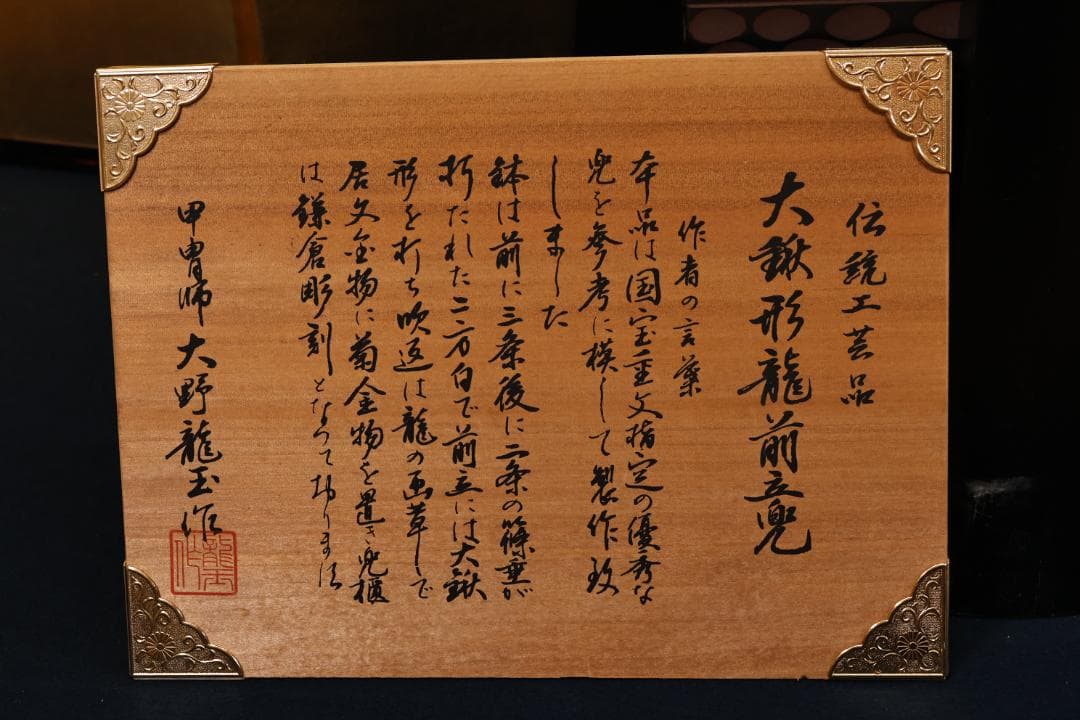 伝統工芸品
大鍬形龍前立兜
作者の言葉
本品は国宝重文指定の優秀な
兜を参考に模して製作致
しました
鉢は前に三条後に二条の篠垂が
打たれた二方白で前立には大鍬
形を打ち吹返は龍の画革で
居文金物に菊金物を置き兜櫃
は鎌倉彫刻となって居ります
甲冑師 大野龍玉作